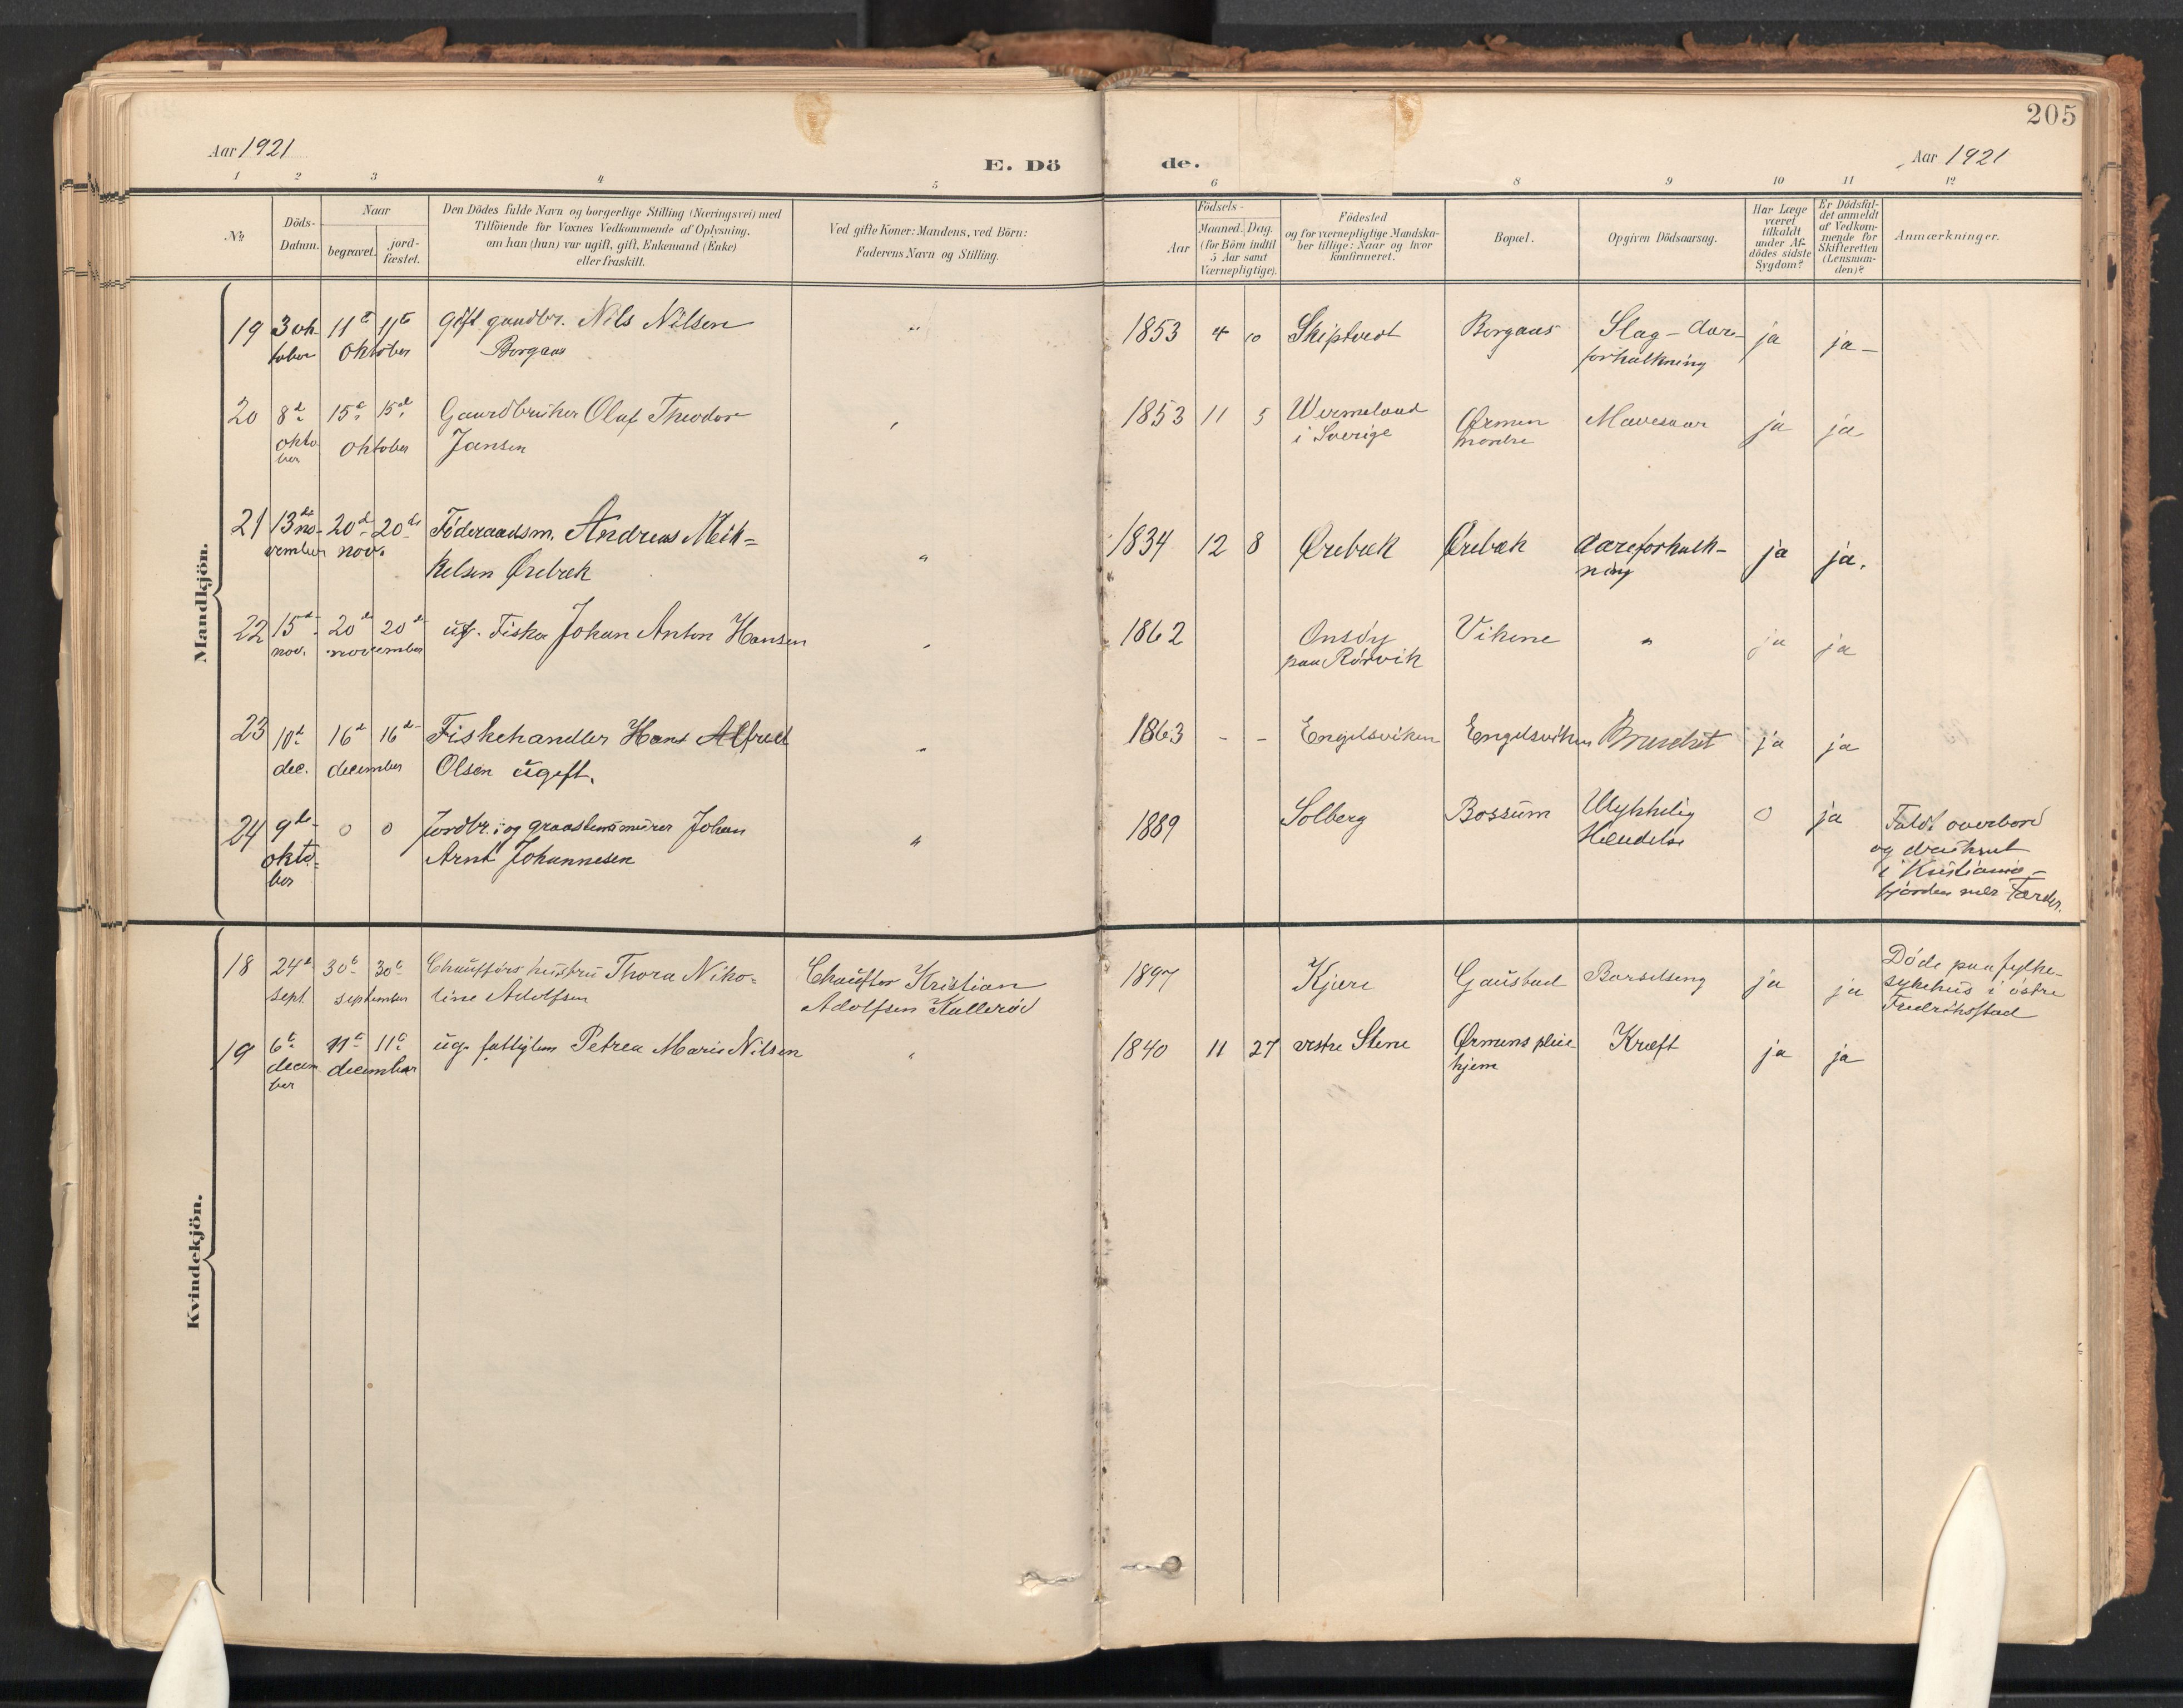 205
Aar 1921
E. Dö
de.
Aar 1921
1 2 3 4 5 6 8 9 10 11 12
№
Döds-
Datum.
Naar
begravet.
jord-
fæstet.
Den Dödes fulde Navn og borgerlige Stilling (Næringsvei) med
Tilföiende for Voxnes Vedkommende af Oplysning,
om han (hun) var ugift, gift, Enkemand (Enke)
eller fraskilt.
Ved gifte Koner: Mandens, ved Börn:
Faderens Navn og Stilling.
Födsels-
Aar
Maaned. Dag.
(for Börn indtil
5 Aar samt
Værnepligtige).
Födested
og for værnepligtige Mandska-
ber tillige: Naar og hvor
konfirmeret.
Bopæl.
Opgiven Dödsaarsag.
Har Læge
været
tilkaldt
under Af-
dödes sidste
Sygdom?
Er Dödsfal-
det anmeldt
af Vedkom-
mende for
Skifteretten
(Lensman-
den)?
Anmærkninger.
Mandkjön.
19 3 ok- 11te 11te Gift gaardbr. Nils Nilsen " 1853 4 10 Skiptvedt Borgaas Slag - Aare- ja ja -
tober oktober Borgaas forkalkning
20 8de 15de 15de Gaardbruker Olaf Theodor " 1853 11 5 Wermeland Ørmen Mavesaar ja ja
okto- oktober Jansen i Sverige nordre
ber
21 13de no- 20de 20de Föderaadsm. Andreas Mik= " 1834 12 8 Ørebæk Ørebæk Aareforkalk- ja ja.
vember nov. kelsen Ørebæk ning
22 15de 20de 20de ug. Fisker Johan Anton Hansen " 1862 Onsöy Vikene " ja ja
nov. november paa Rörvik
23 10de 16de 16de Fiskehandler Hans Alfred " 1863 - - Engelsviken Engelsviken Bruskhet ja ja
dec. december Olsen ugift.
24 9de 0 0 Jordbr. og graastensmurer Johan " 1889 Solberg Bossum Ulykkelig 0 ja Faldt overbord
okto- Arnt Johannesen Hændelse og druknet
ber i Kristiania-
fjorden nær Færder.
Kvindekjön.
18 24de 30te 30te Chaufförs hustru Thora Niko- Chauffør Kristian 1897 Kjære Gausbad Barselseng ja ja Döde paa fylke-
sept. september line Adolfsen Adolfsen Kallerød sykehus i östre
Fredrikstad
19 6te 11te 11te ug. fattiglem Petrea Marie Nilsen " 1840 11 27 vestre Stene Ørmens pleie- Kræft ja ja
decem- december hjem
ber